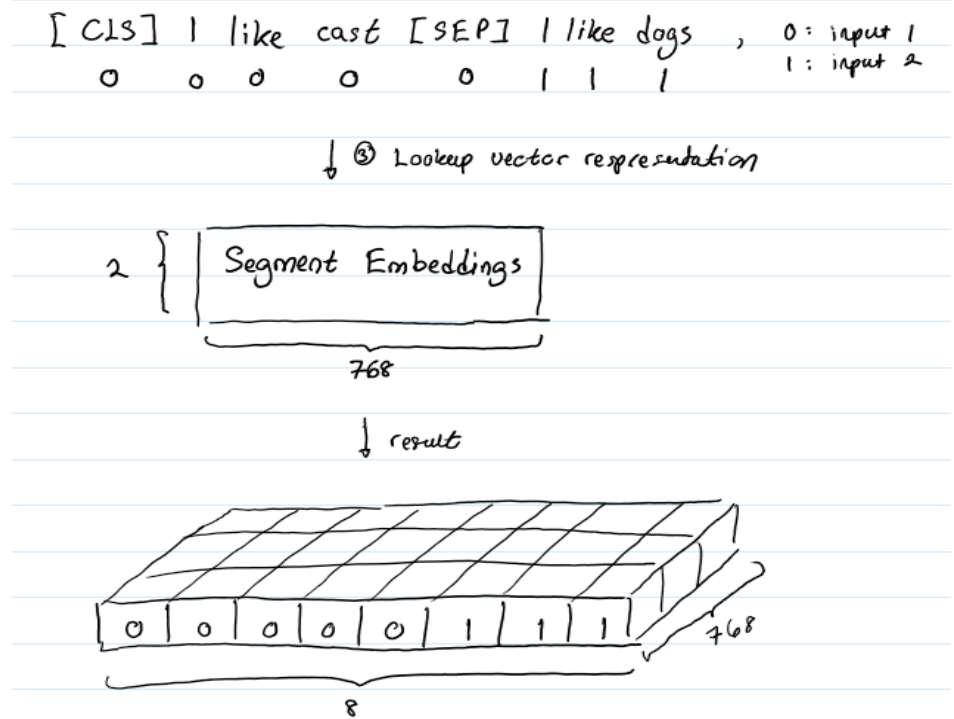 [CLS] I like cast [SEP] I like dogs , 0: input 1
0 0 0 0 0 1 1 1 1: input 2
↓ ③ Lookup vector respresentation
2 { Segment Embeddings
768
↓ result
0 0 0 0 0 1 1 1
768
8